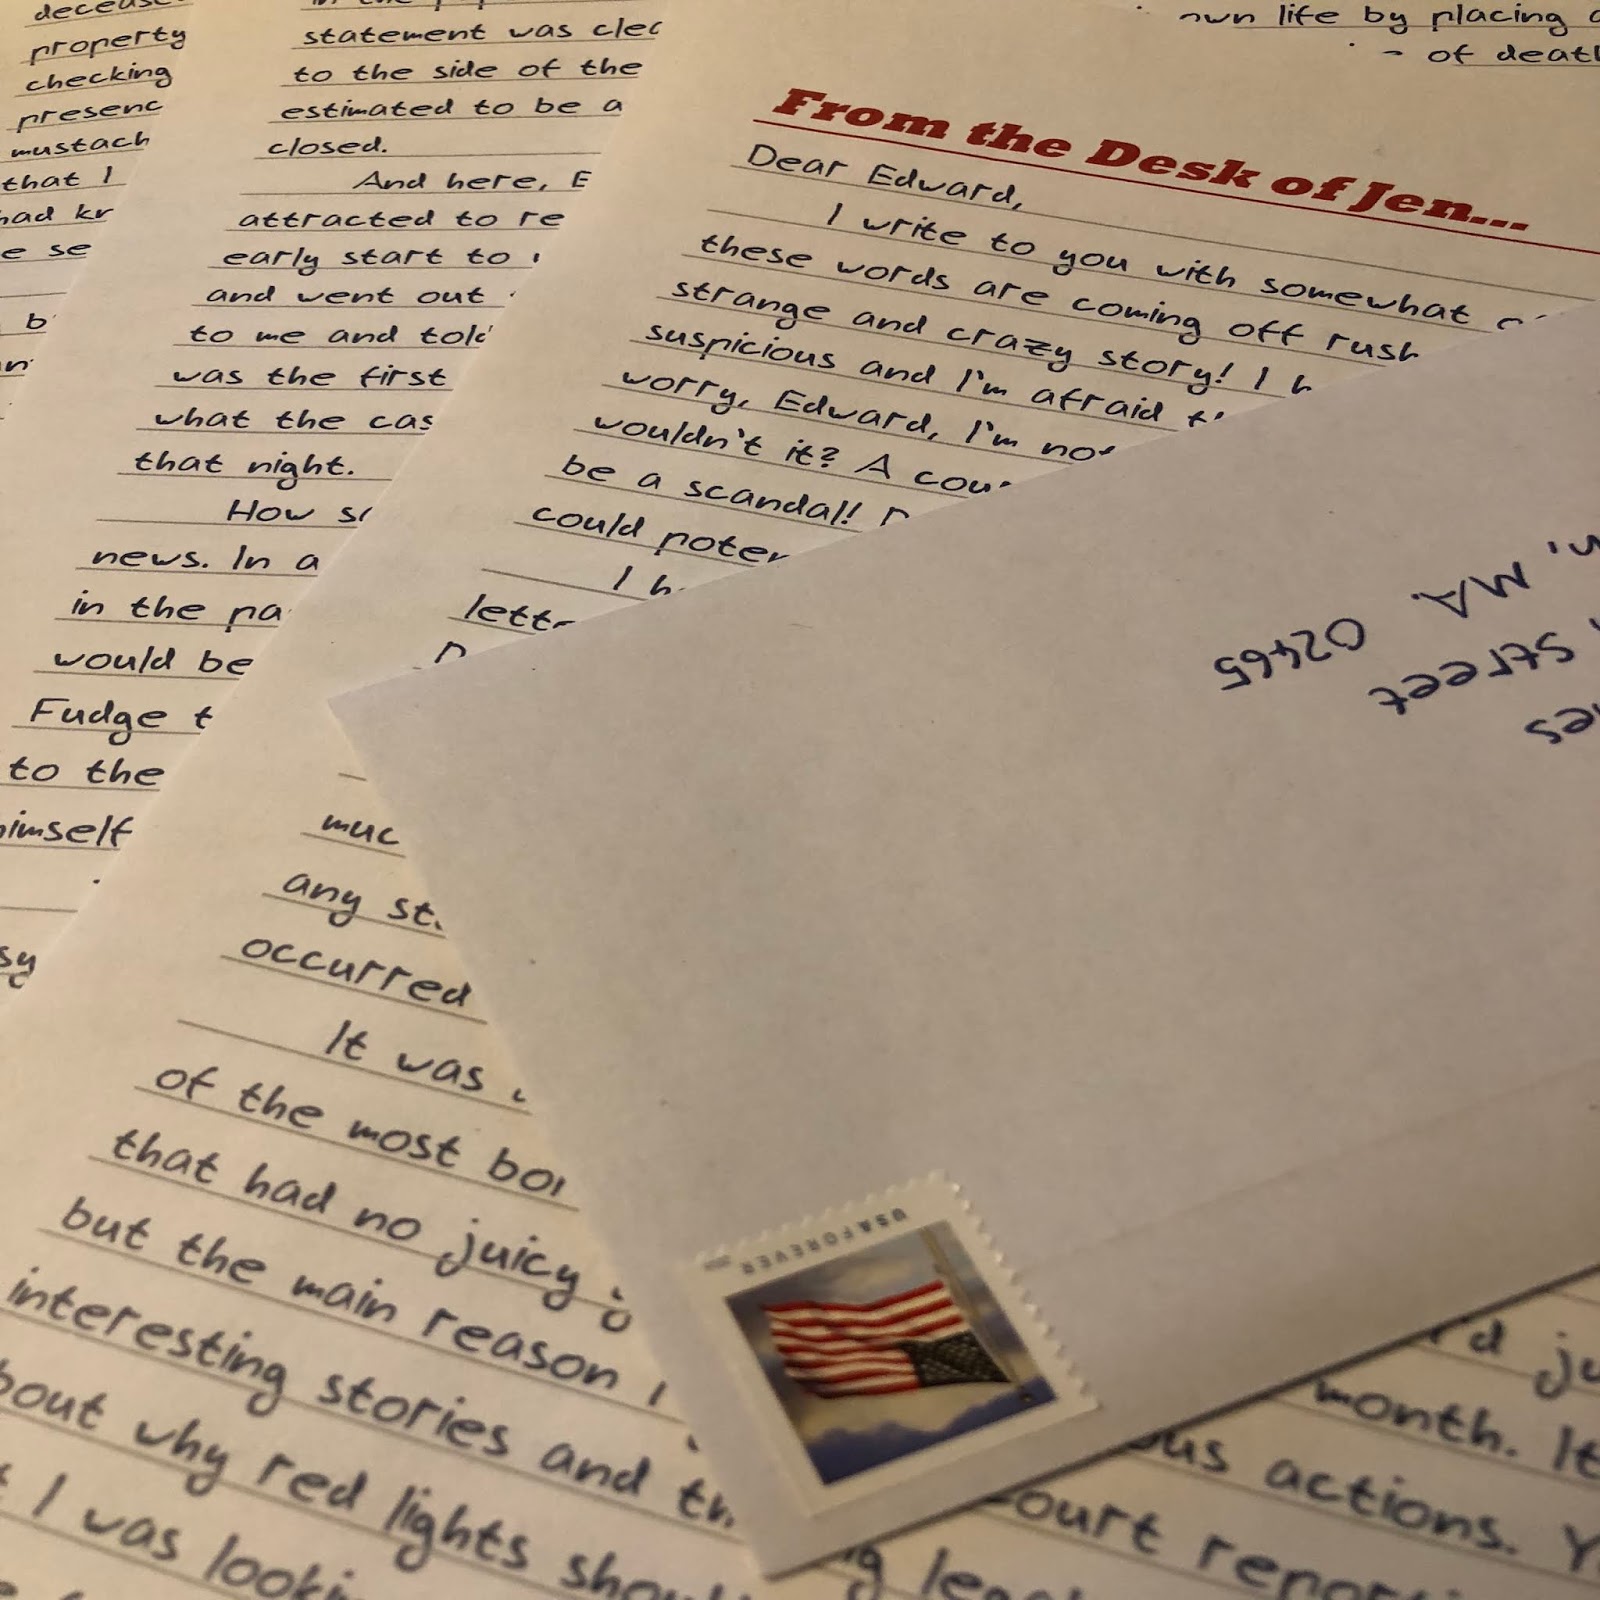 property
checking
mustach
that I
statement was clea
to the side of the
estimated to be a
closed.
And here, E
attracted to re
early start to
and went out
to me and told
was the first
what the cas
that night.
How
news. In a
in the pa
would be
Fudge t
to the
himself
own life by placing
of death
From the Desk of Jen...
Dear Edward,
I write to you with somewhat
these words are coming off rush
strange and crazy story! I h
suspicious and I'm afraid
worry, Edward, I'm not
wouldn't it? A cou
be a scandal!
could poten
I h
lette
muc
any st
occurred
It was
of the most bor
that had no juicy g
but the main reason I
interesting stories and th
bout why red lights shoul
I was looki
MA. 02465
Street
USA FOREVER
I'd ju
month. It
actions.
court report